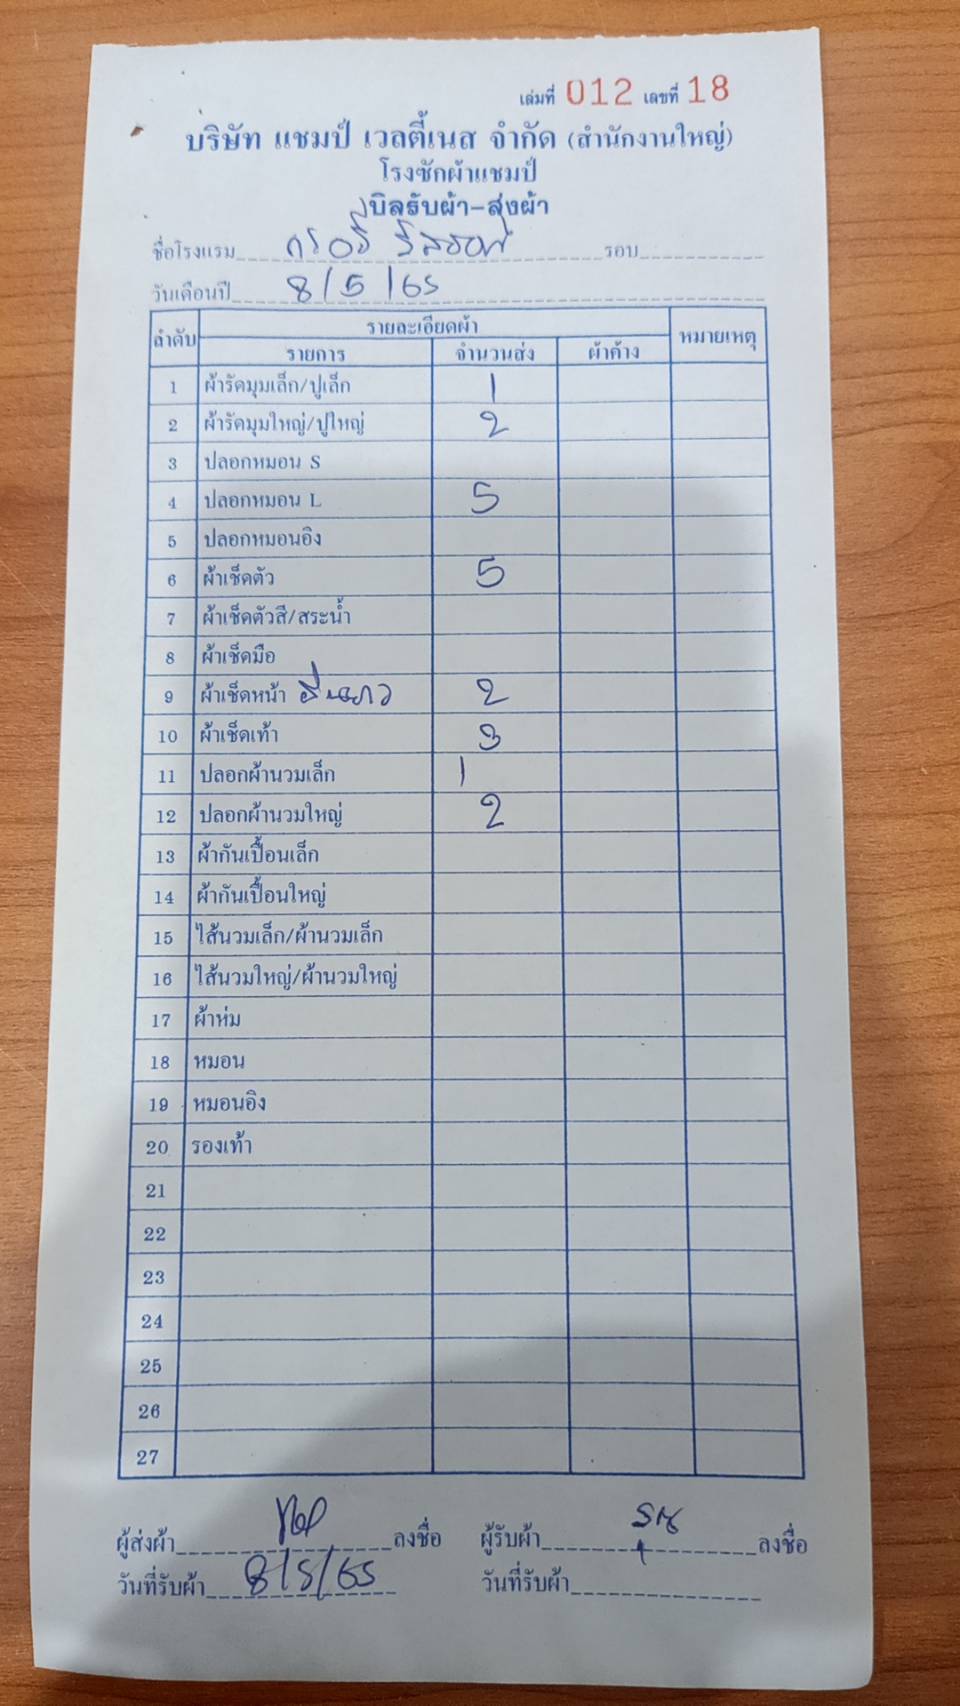 เล่มที่ 012 เลขที่ 18
บริษัท แชมป์ เวลตี้เนส จำกัด (สำนักงานใหญ่)
โรงซักผ้าแชมป์
บิลรับผ้า-ส่งผ้า
ชื่อโรงแรม รอบ
วันเดือนปี 8/5/65
ลำดับ รายละเอียดผ้า หมายเหตุ
รายการ จำนวนส่ง ผ้าค้าง
1 ผ้ารัดมุมเล็ก/ปูเล็ก 1
2 ผ้ารัดมุมใหญ่/ปูใหญ่ 2
3 ปลอกหมอน S
4 ปลอกหมอน L 5
5 ปลอกหมอนอิง
6 ผ้าเช็ดตัว 5
7 ผ้าเช็ดตัวสี/สระน้ำ
8 ผ้าเช็ดมือ
9 ผ้าเช็ดหน้า 2
10 ผ้าเช็ดเท้า 3
11 ปลอกผ้านวมเล็ก 1
12 ปลอกผ้านวมใหญ่ 2
13 ผ้ากันเปื้อนเล็ก
14 ผ้ากันเปื้อนใหญ่
15 ไส้นวมเล็ก/ผ้านวมเล็ก
16 ไส้นวมใหญ่/ผ้านวมใหญ่
17 ผ้าห่ม
18 หมอน
19 หมอนอิง
20 รองเท้า
21
22
23
24
25
26
27
ผู้ส่งผ้า ลงชื่อ ผู้รับผ้า ลงชื่อ
วันที่รับผ้า 8/5/65 วันที่รับผ้า